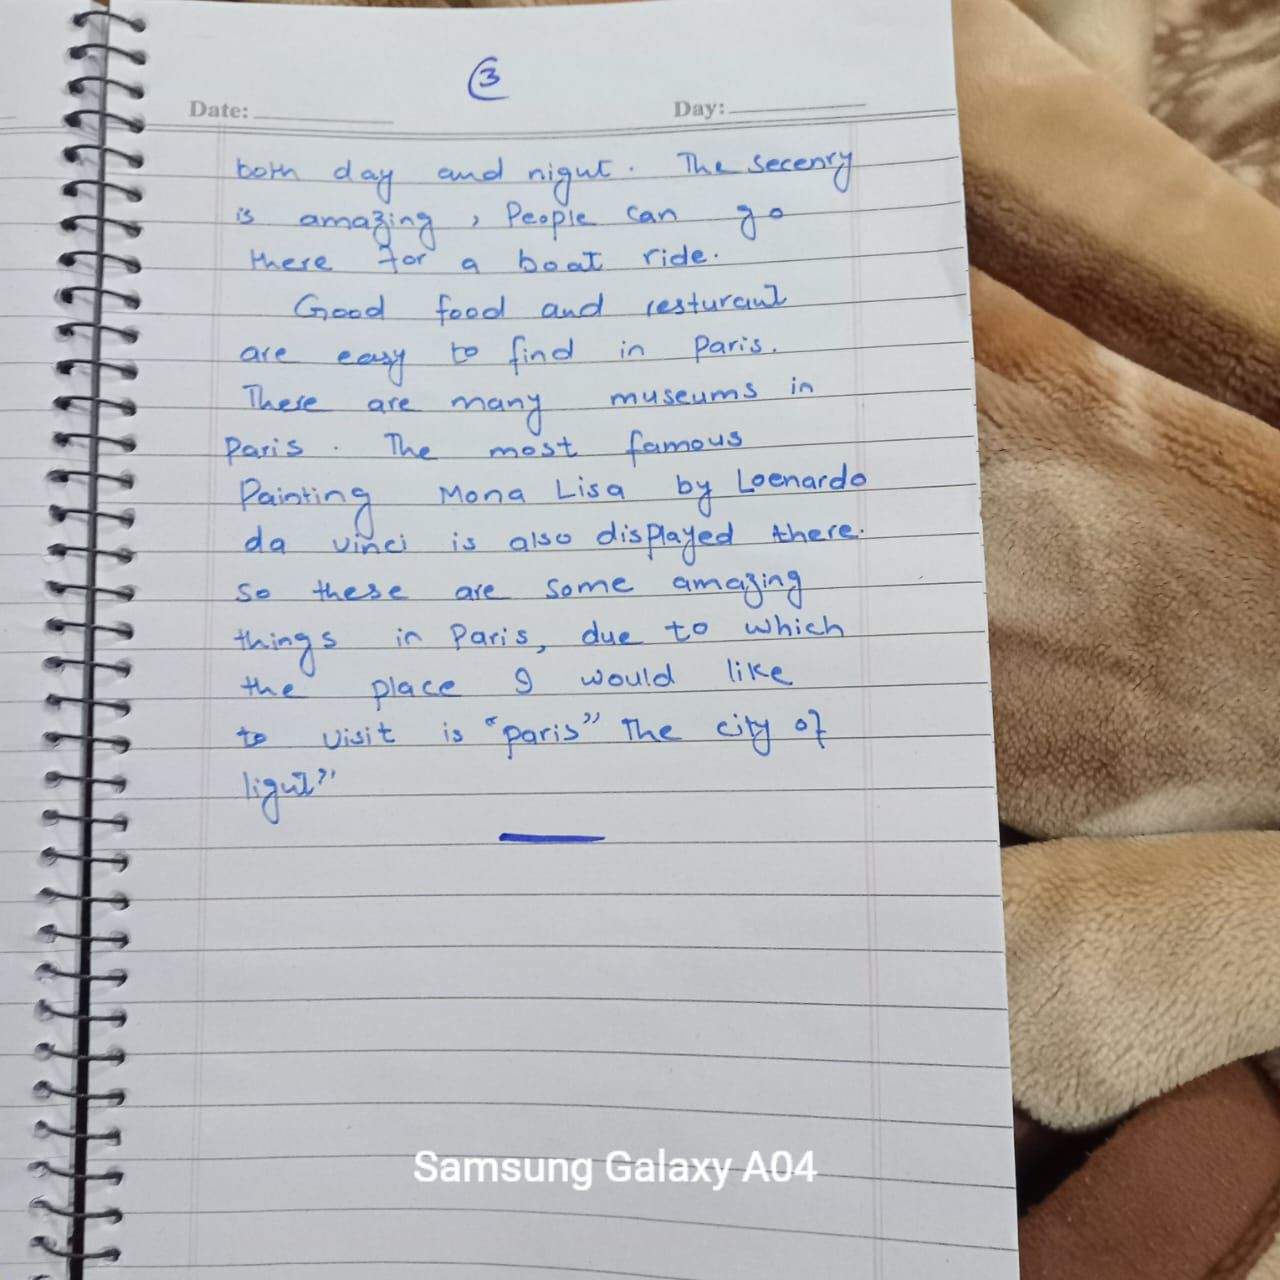 3
Date: Day:
both day and night. The secenry
is amazing, People can go
there for a boat ride.
Good food and resturant
are easy to find in Paris.
There are many museums in
Paris. The most famous
Painting Mona Lisa by Loenardo
da vinci is also displayed there.
so these are some amazing
things in Paris, due to which
the place I would like
to visit is "paris" The city of
light"
Samsung Galaxy A04